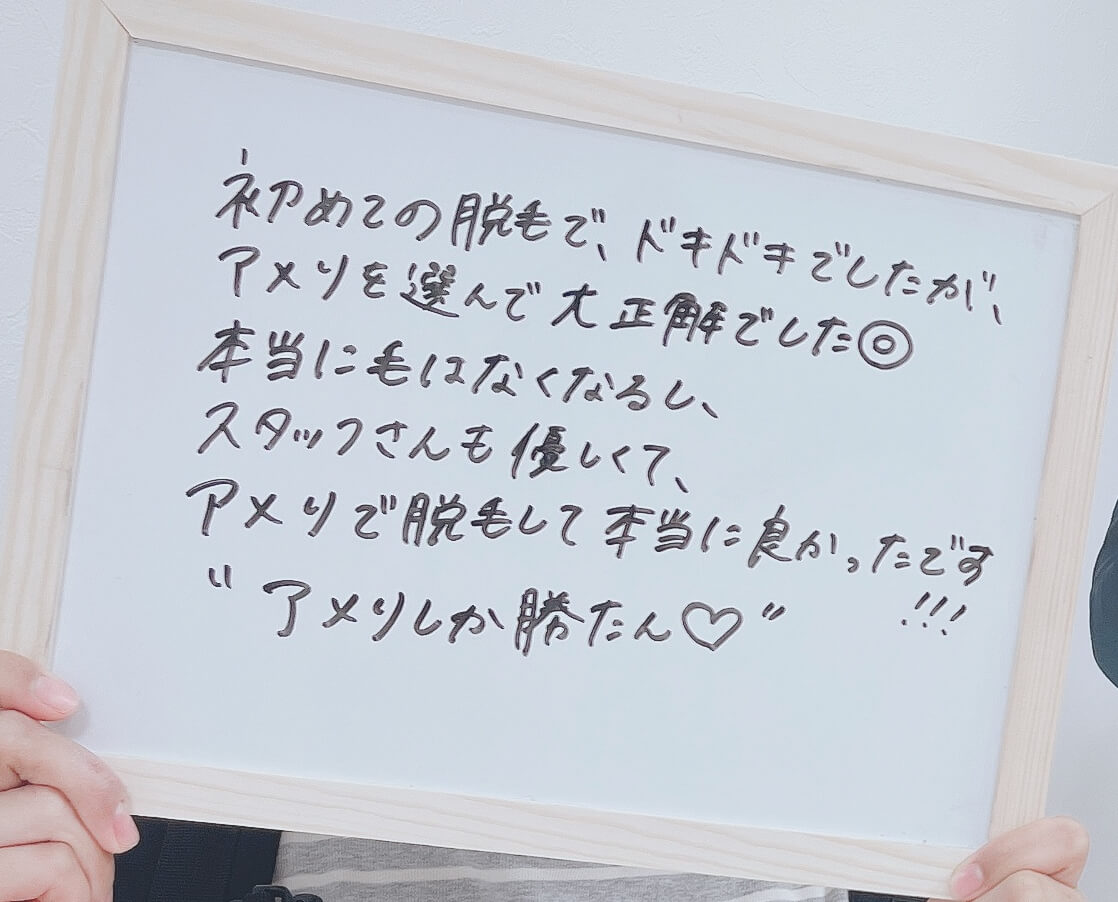 初めての脱毛で、ドキドキでしたが、
アメリを選んで大正解でした◎
本当に毛はなくなるし、
スタッフさんも優しくて、
アメリで脱毛して本当に良かったです
!!!
"アメリしか勝たん♡"